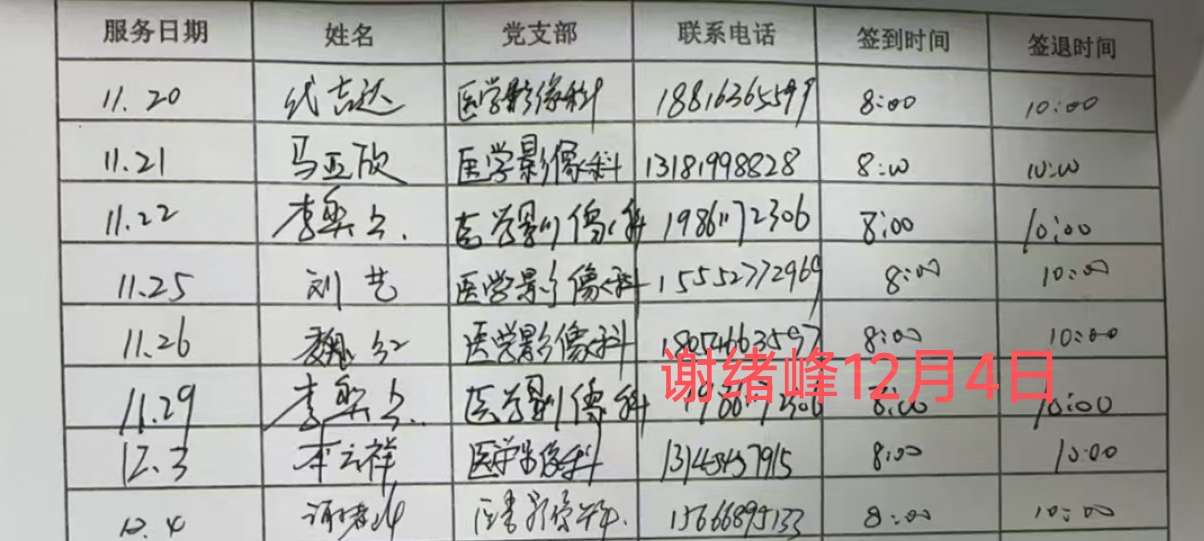 服务日期 姓名 党支部 联系电话 签到时间 签退时间
11.20 代吉达 医学影像科 18816365599 8:00 10:00
11.21 马亚欣 医学影像科 13181998828 8:00 10:00
11.22 李 医学影像科 19861172306 8:00 10:00
11.25 刘艺 医学影像科 15552772969 8:00 10:00
11.26 魏 医学影像科 18054663597 8:00 10:00
谢绪峰12月4日
11.29 李 医学影像科 8:00 10:00
12.3 李云祥 医学影像科 8:00 10:00
12.4 谢绪峰 医学影像科 15666895133 8:00 10:00